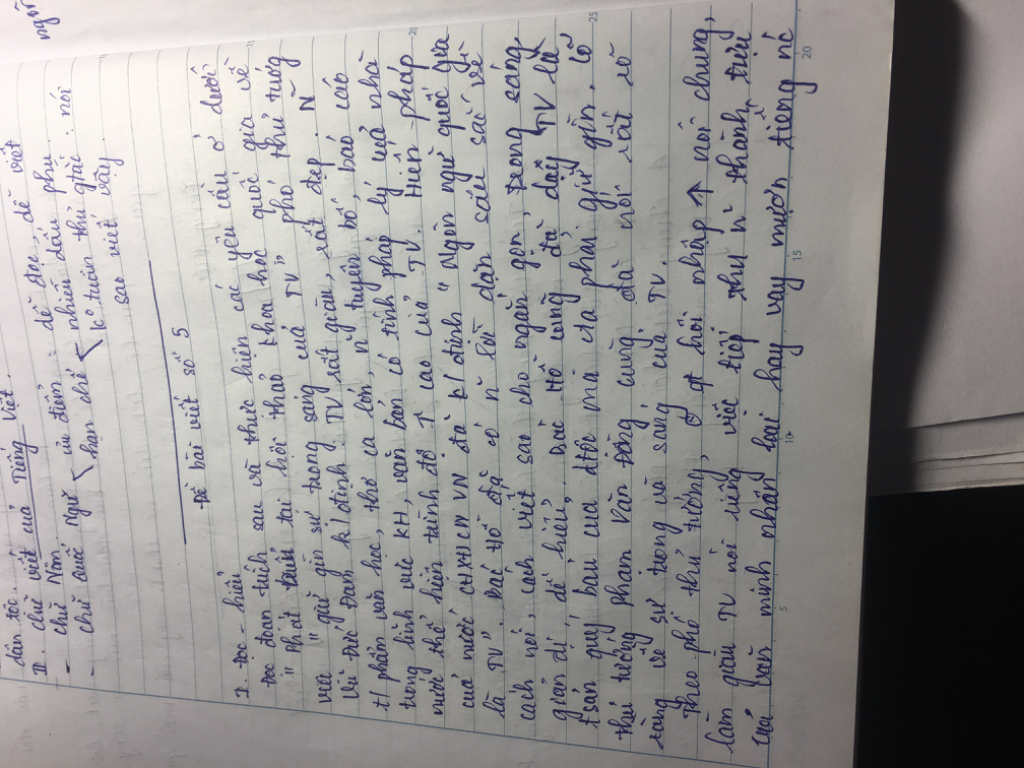 ngôn
dân tộc.
II. chữ viết của Tiếng Việt.
- chữ Nôm
- chữ quốc ngữ ưu điểm: dễ đọc, dễ viết
hạn chế nhiều dấu phụ
k° tuân thủ gtắc: nói
sao viết vậy.
Đề bài viết số 5
I. Đọc - hiểu
Đọc đoạn trích sau và thực hiện các yêu cầu ở dưới
"Phát biểu tại hội thảo khoa học quốc gia về
việc "giữ gìn sự trong sáng của TV" phó thủ tướng
Vũ Đức Đam k/định TV rất giàu, rất đẹp. N~
t/phẩm văn học, thơ ca lớn, n~ tuyên bố, báo cáo
trong lĩnh vực KH, văn bản có tính pháp lý của nhà
nước thể hiện trình độ cao của TV. Hiến pháp
của nước CHXHCN VN đã k/định "Ngôn ngữ quốc gia
là TV". Bác Hồ đã có n~ lời dặn sâu sắc về
cách nói, cách viết sao cho ngắn gọn, trong sáng
giản dị, dễ hiểu. Bác Hồ cũng đã dạy TV là
t/sản quý báu của dtộc mà cta phải giữ gìn. Cố
thủ tướng Phạm Văn Đồng cũng đã nói rất rõ
ràng về sự trong và sáng của TV.
Theo phó thủ tướng, hội nhập ↑ nói chung,
làm giàu TV nói riêng việc tiếp thu n~ thành tựu
của văn minh nhân loại hay vay mượn tiếng nc